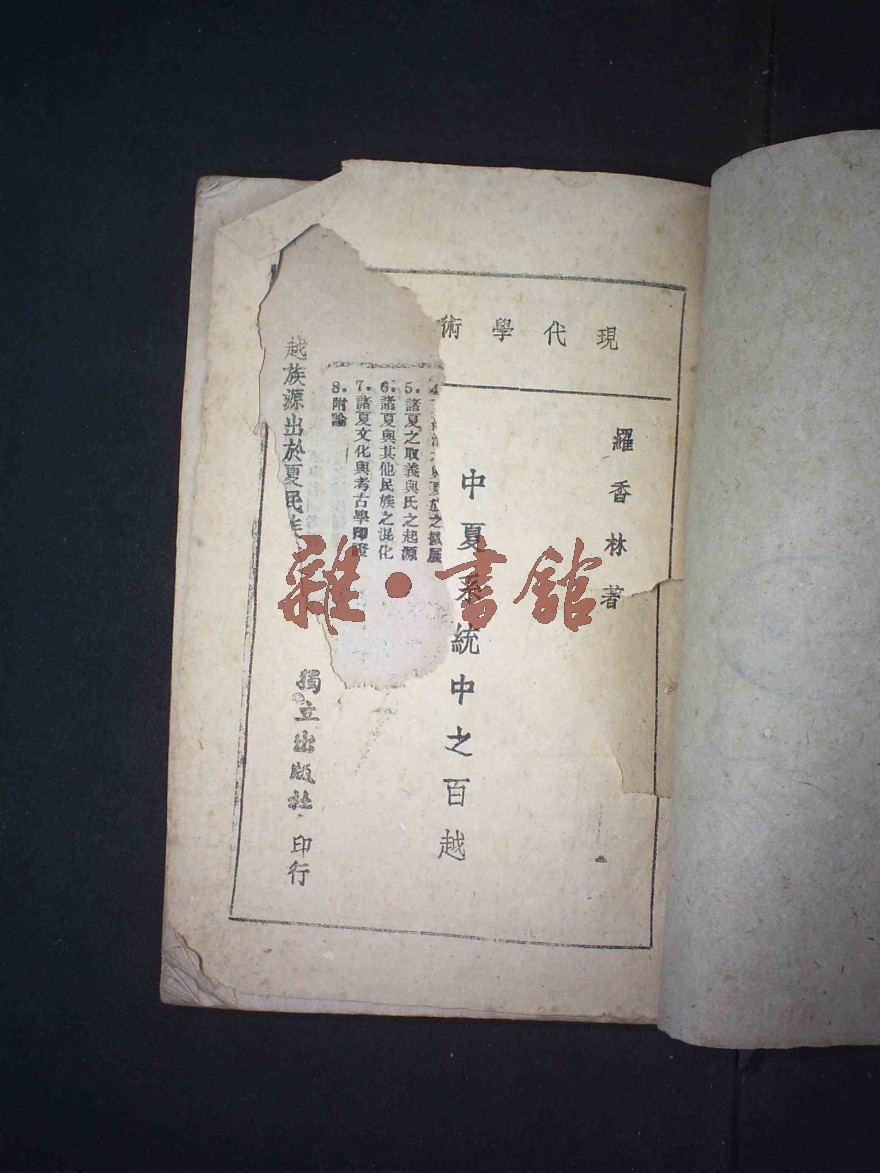 現代學術
羅香林著
中夏系統中之百越
5.諸夏之取義與氏之起源
6.諸夏與其他民族之混化
7.諸夏文化與考古學印證
8.附論
越族源出於夏民族
獨立出版社印行
雜·書館